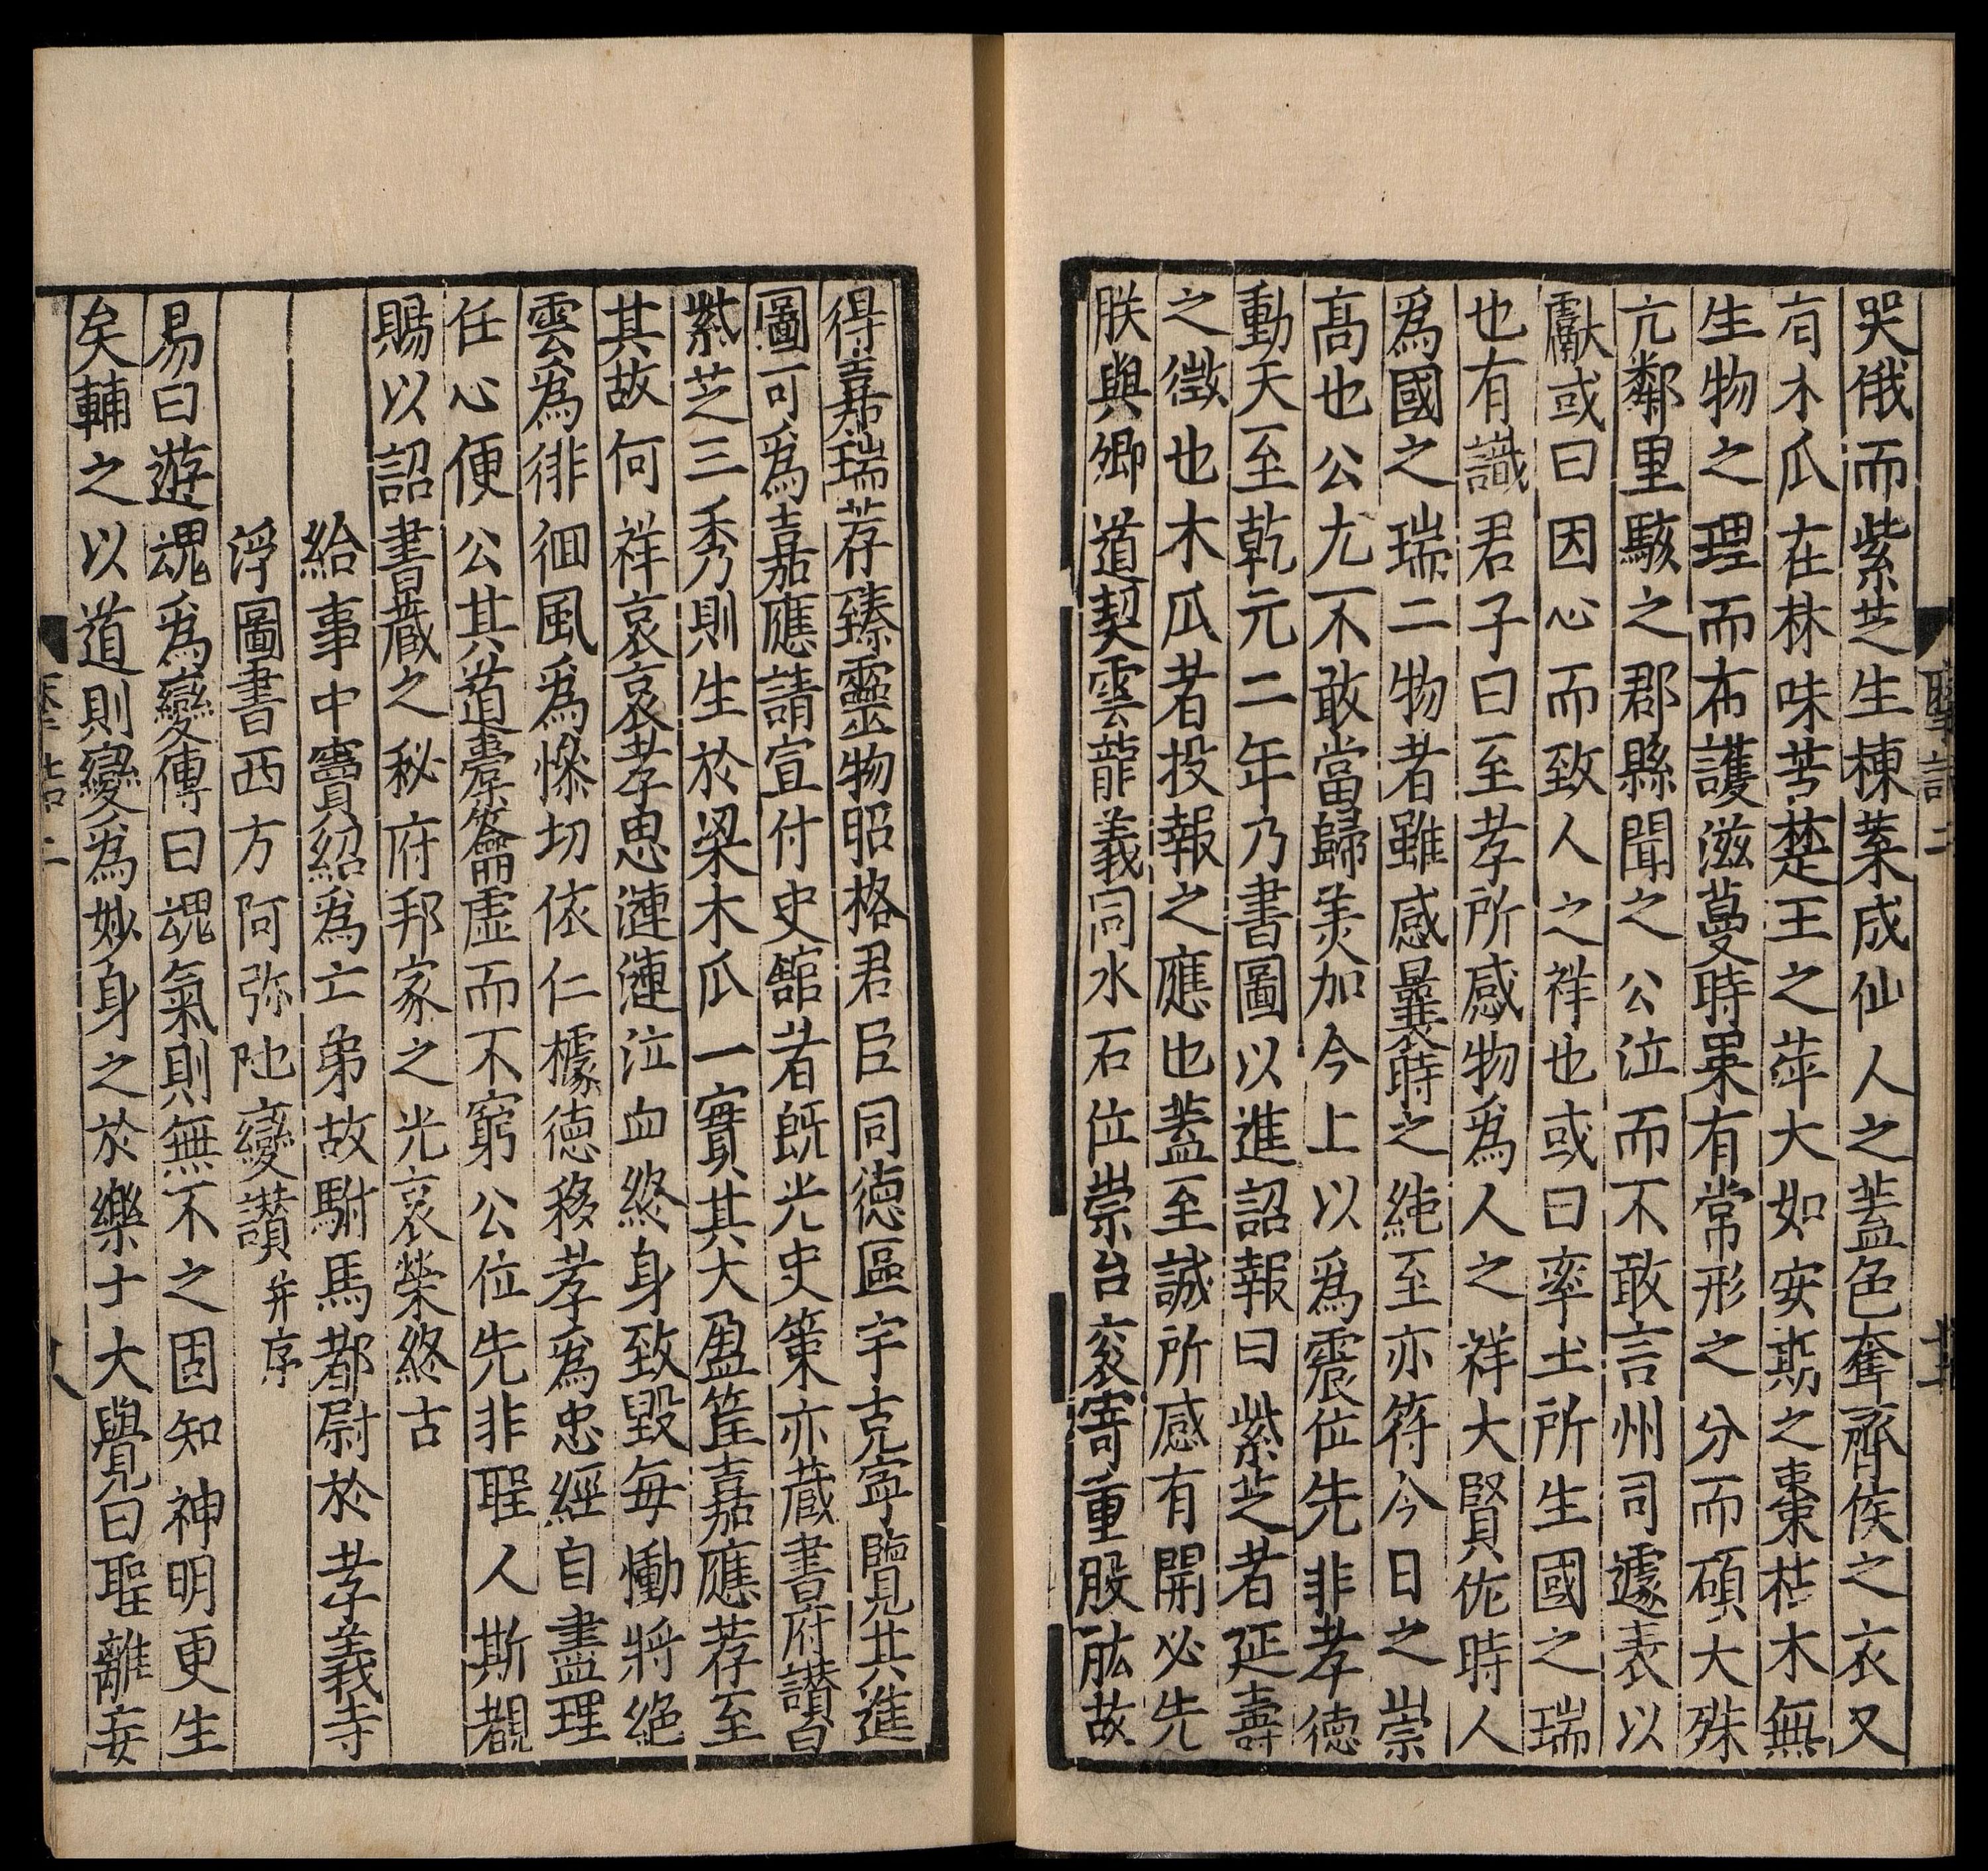 哭俄而紫芝生棟葉成仙人之蓋色奪齊侯之衣又
有木瓜在林味苦楚王之萍大如安期之棗枯木無
生物之理而布護滋蔓時果有常形之分而碩大殊
亢鄰里駭之郡縣聞之公泣而不敢言州司遽表以
獻或曰因心而致人之祥也或曰率土所生國之瑞
也有識君子曰至孝所感物為人之祥大賢佐時人
為國之瑞二物者雖感曩時之純至亦符今日之崇
高也公尤不敢當歸美加今上以為震位先非孝德
動天至乾元二年乃書圖以進詔報曰紫芝者延壽
之徵也木瓜者投報之應也蓋至誠所感有開必先
朕與卿道契雲龍義同水石位崇台袞寄重股肱故
得嘉瑞荐臻靈物昭格君臣同德區宇克寧覽其進
圖可為嘉應請宣付史館者既光史策亦藏書府讃曰
紫芝三秀則生於梁木瓜一實其大盈筐嘉應荐至
其故何祥哀哀孝思漣漣泣血終身致毀每慟將絕
雲為徘徊風為慘切依仁據德移孝為忠經自盡理
任心便公其道橐籥虛而不窮公位先非聖人斯覩
賜以詔書藏之秘府邦家之光哀榮終古
給事中竇紹為亡弟故駙馬都尉於孝義寺
浮圖書西方阿弥陁變讃并序
易曰遊魂為變傳曰魂氣則無不之固知神明更生
矣輔之以道則變為妙身之於樂土大覺曰聖離妄